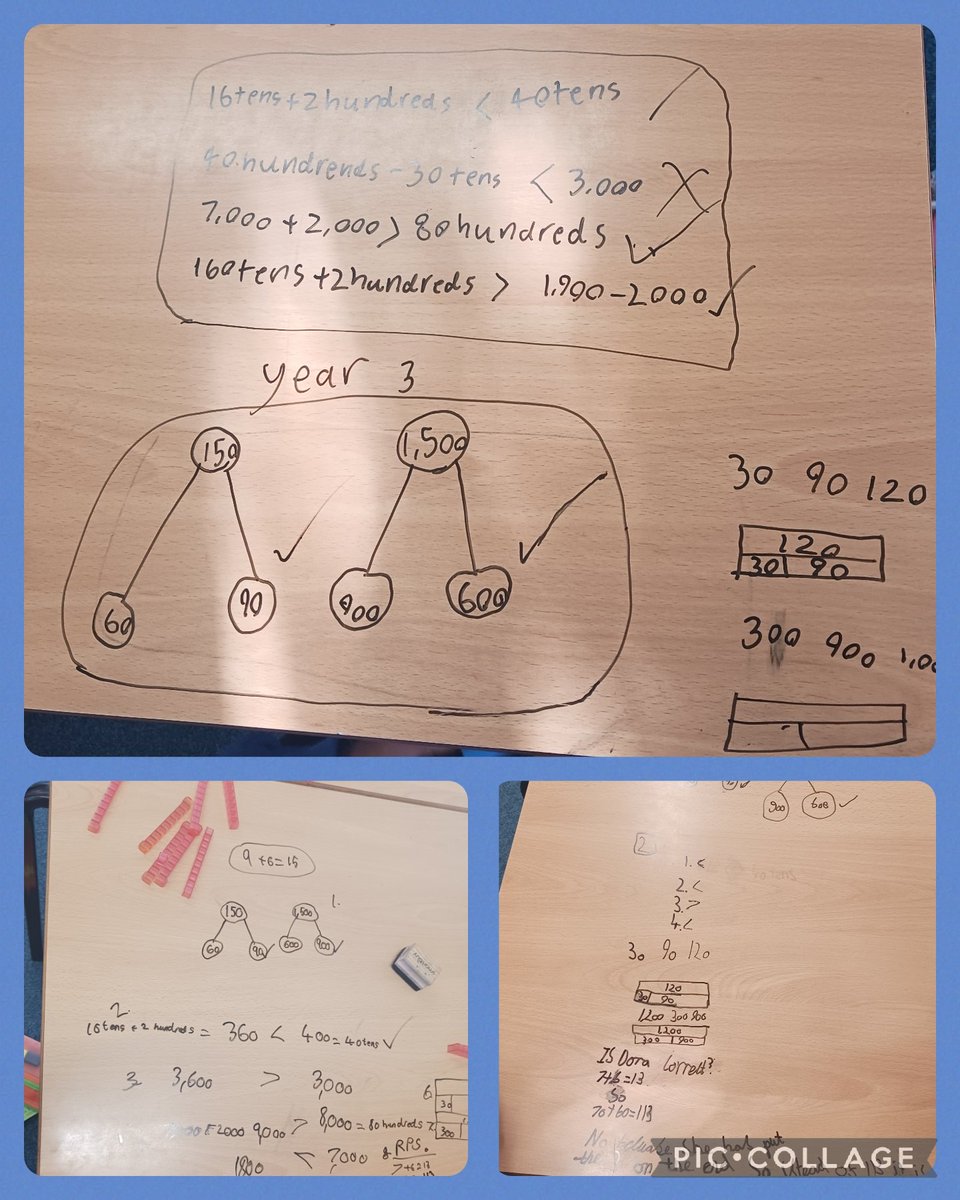 16tens+2hundreds < 40tens
40.hundrends - 30 tens < 3.000
7,000 + 2,000 > 80 hundreds
160tens +2hundreds > 1.900-2000
year 3
150
1,500
60
90
900
600
30 90 120
120
30 90
300 900
9 +6=15
1.
150
1,500
60
90
600
900
2.
16 tens + 2 hundreds = 360 < 400 = 40 tens
3 3,600 > 3,000
2000 9,000 > 8,000 = 80 hundreds
1800 < 7,000
6
30
7
300
8 RPS.
900 600
2
1. <
2. <
3. >
4. <
30 90 120
120
30 90
1200 300 900
1200
300 900
Is Dora Correct?
7+6=13
So
70+60=113
No
PIC•COLLAGE